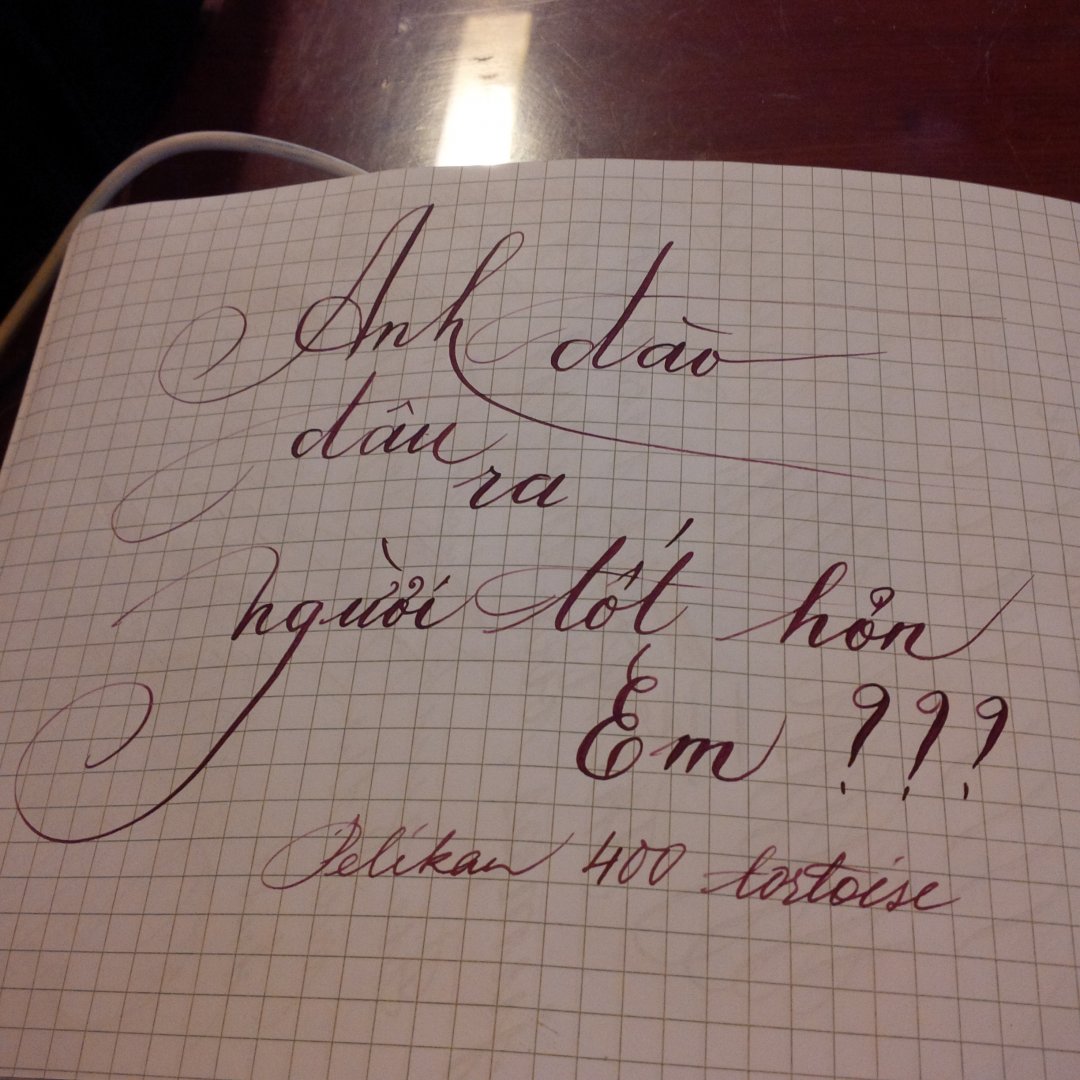 Anh đào
đâu
ra
người tốt hơn
Em ???
Pelikan 400 tortoise